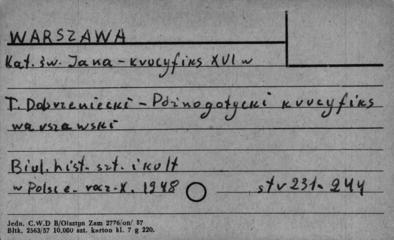 WARSZAWA
Kat. św. Jana - krucyfiks XVI w
T. Dobrzeniecki - Późnogotycki krucyfiks
warszawski
Biul. hist. szt. i kult
w Polsce. rocz. X. 1948 str 231-244
Jedn. C.W.D B/Olsztyn Zam 2776/on/ 57
Bltk. 2563/57 10.000 szt. karton kl. 7 g 220.